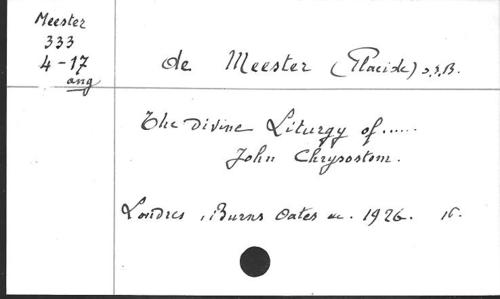 Meester
333
4-17
ang
de Meester (Placide) o.s.B.
The Divine Liturgy of......
John Chrysostom.
Londres, Burns Oates 1926. 16.